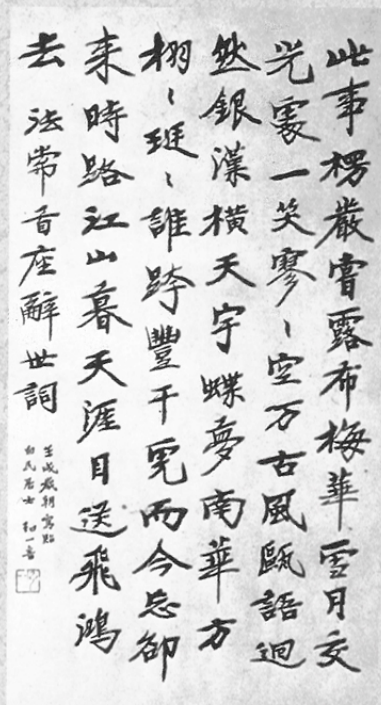 此事楞嚴嘗露布梅華雪月交
光處一笑寥〻空万古風甌語迥
然銀漢橫天宇蝶夢南華方
栩〻珽〻誰跨豐干虎而今忘卻
来時路江山暮天涯目送飛鴻
去 法常首座辭世詞
壬戌歲朝寫貽
白民居士 弘一音